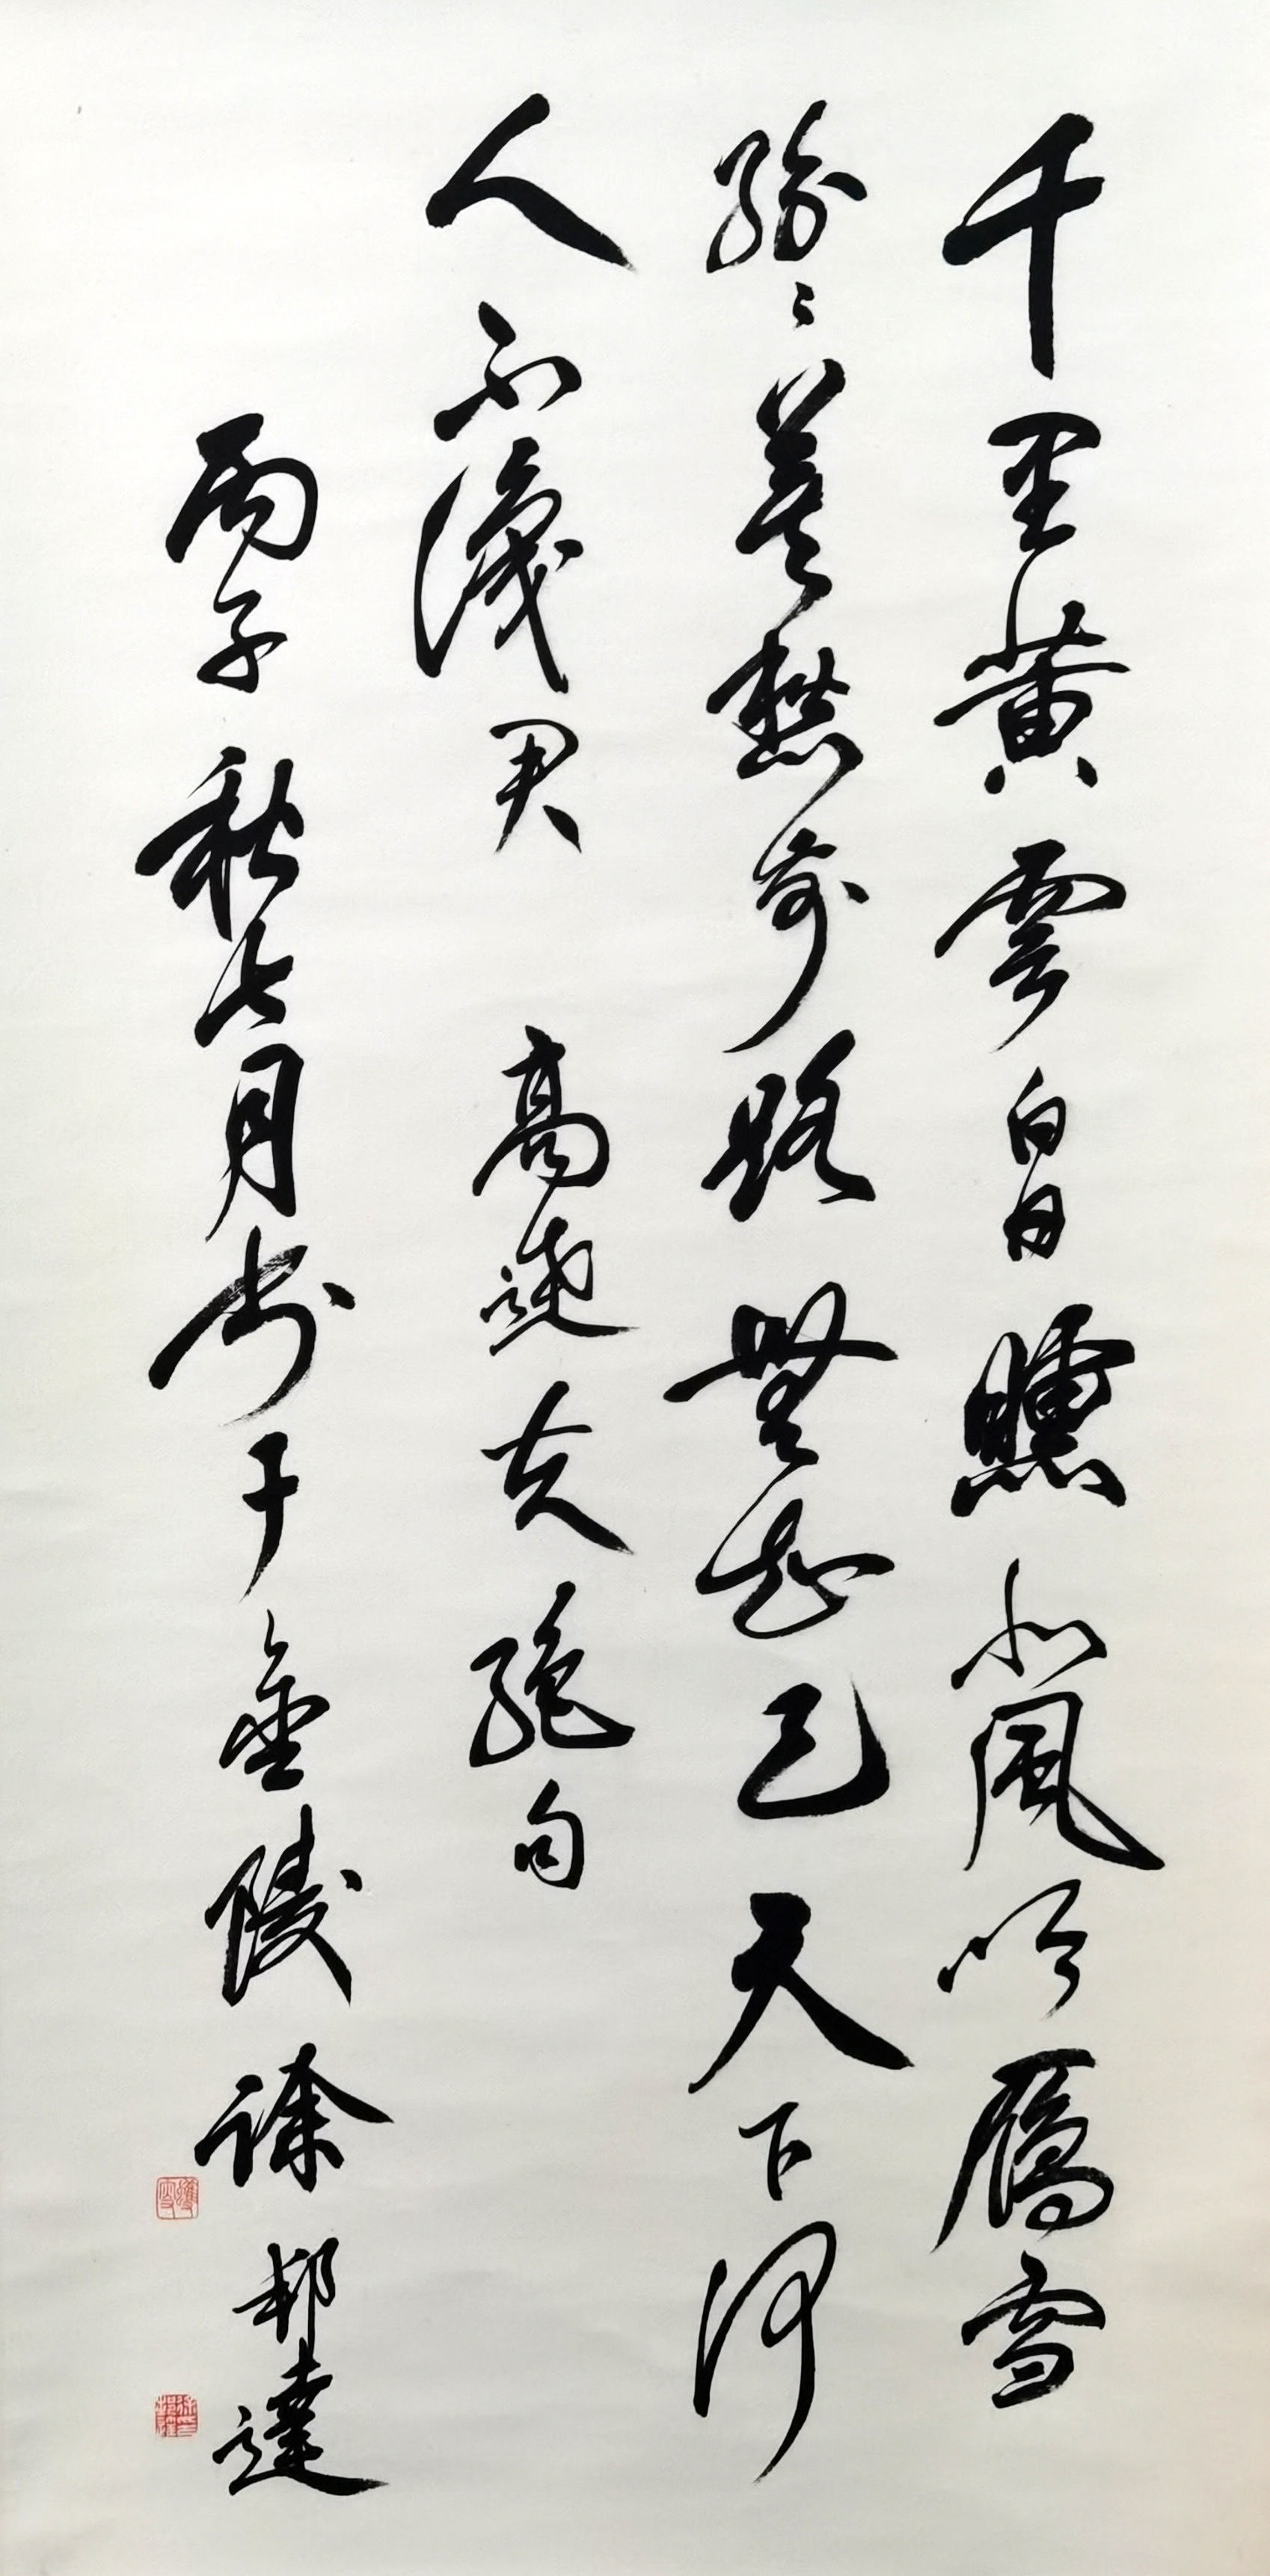 千里黄雲白日曛北風吹雁雪
紛〻莫愁前路無知己天下何
人不識君 高適夫絕句
丙子秋七月書于金陵徐邦達